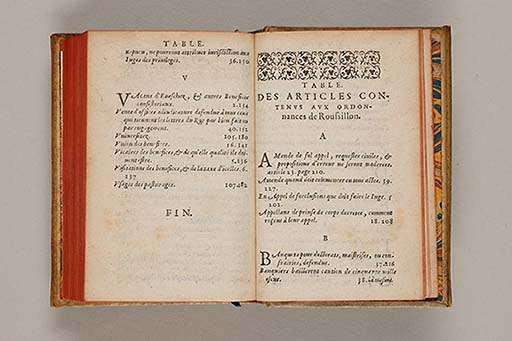 TABLE.
Iuges des privileges. 36.150
V
VAcans d'Eueschez, & autres Benefices
consistoriaux. 2.134
Vente d'offices de iudicature defendue à tous ceux
qui tiennent les lettres du Roy par bien faicts ou
par engagement. 40.152
Vniuersitez. 105.180
Vnion des benefices 16.141
Vicaires les benefices, & de qu'elle qualité ils doi-
5.136
Visitations des benefices, & de la taxe d'icelles. 6.
137
Vsages des pasturages. 107.282
FIN.
TABLE.
DES ARTICLES CON-
TENVS AVX ORDON-
nances de Roussillon.
A
AMende de fol appel, requestes ciuiles, &
propositions d'erreur ne seront moderees.
article 23. page 210.
Amende quand doit estre
En Appel de forclusions que doit faire le Iuge. 5
202.
Appellans de prinse de corps decretee, comment
leur appel. 18.208
B
BAnquets pour maistrises, ou con-
frairies, defendus. 37.216
Banquiers bailleront caution de cinquante mille
escus. 38. là mesme.